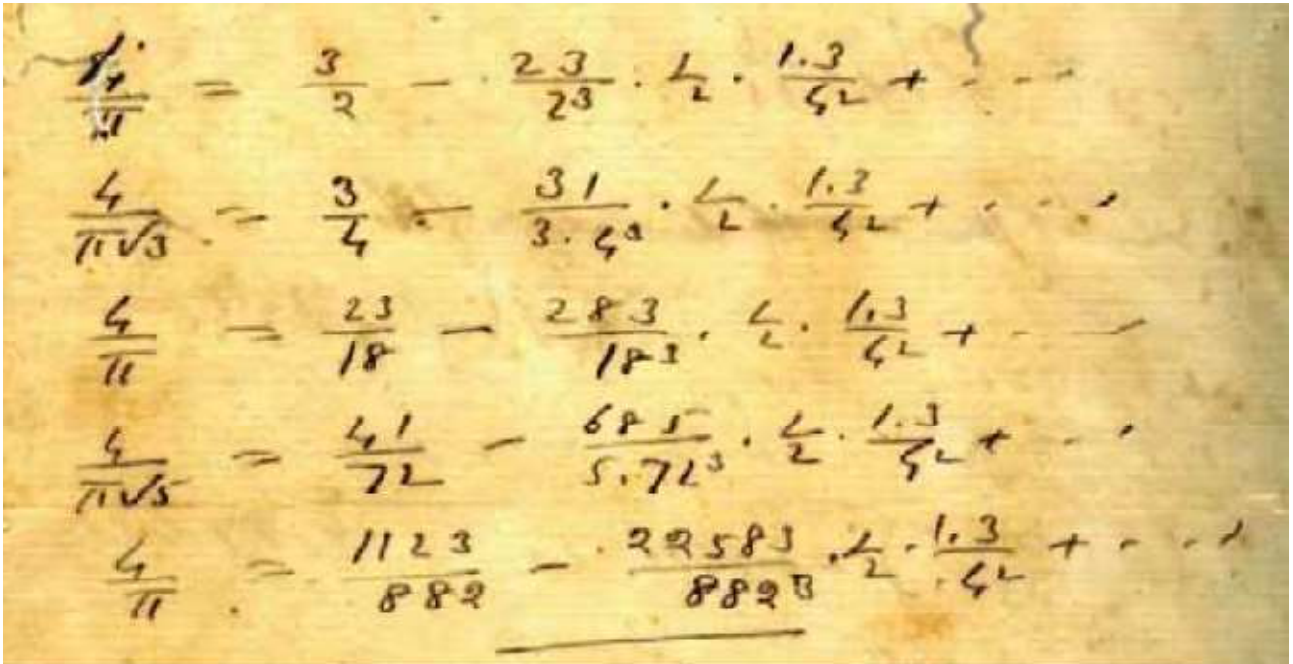 4/π = 3/2 - 23/2³ · 1/2 · 1.3/4² + - - -
4/π√3 = 3/4 - 31/3.4³ · 1/2 · 1.3/4² + - - -
4/π = 23/18 - 283/18³ · 1/2 · 1.3/4² + - - -
4/π√5 = 41/72 - 685/5.72³ · 1/2 · 1.3/4² + - - -
4/π = 1123/882 - 22583/882³ · 1/2 · 1.3/4² + - - -